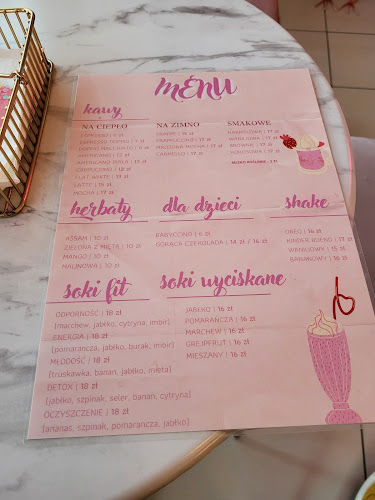 MENU
kawy
NA CIEPŁO
ESPRESSO
ESPRESSO DOPPIO
AMERICANO
CAPPUCCINO
FLAT WHITE
LATTE | 15 zł
MOCHA | 17 zł
NA ZIMNO
FRAPPUCCINO | 17 zł
MROŻONA MOCHA | 17 zł
SMAKOWE
KARMELOWA | 17 zł
WANILIOWA | 17 zł
BROWNIE | 17 zł
KOKOSOWA | 17 zł
MLEKO ROŚLINNE
herbaty
ASSAM | 10 zł
ZIELONA Z MIĘTĄ | 10 zł
MANGO | 10 zł
MALINOWA | 10 zł
dla dzieci
BABYCCINO | 6 zł
GORĄCA CZEKOLADA | 14 zł / 16 zł
shake
OREO | 16 zł
KINDER BUENO | 17 zł
WANILIOWY | 15 zł
BANANOWY | 16 zł
soki fit
ODPORNOŚĆ | 18 zł
[marchew, jabłko, cytryna, imbir]
ENERGIA | 18 zł
[pomarańcza, jabłko, burak, imbir]
MŁODOŚĆ | 18 zł
[truskawka, banan, jabłko, mięta]
DETOX | 18 zł
[jabłko, szpinak, seler, banan, cytryna]
OCZYSZCZENIE | 18 zł
[ananas, szpinak, pomarańcza, jabłko]
soki wyciskane
JABŁKO | 16 zł
POMARAŃCZA | 16 zł
MARCHEW | 16 zł
GREJPFRUT | 16 zł
MIESZANY | 16 zł